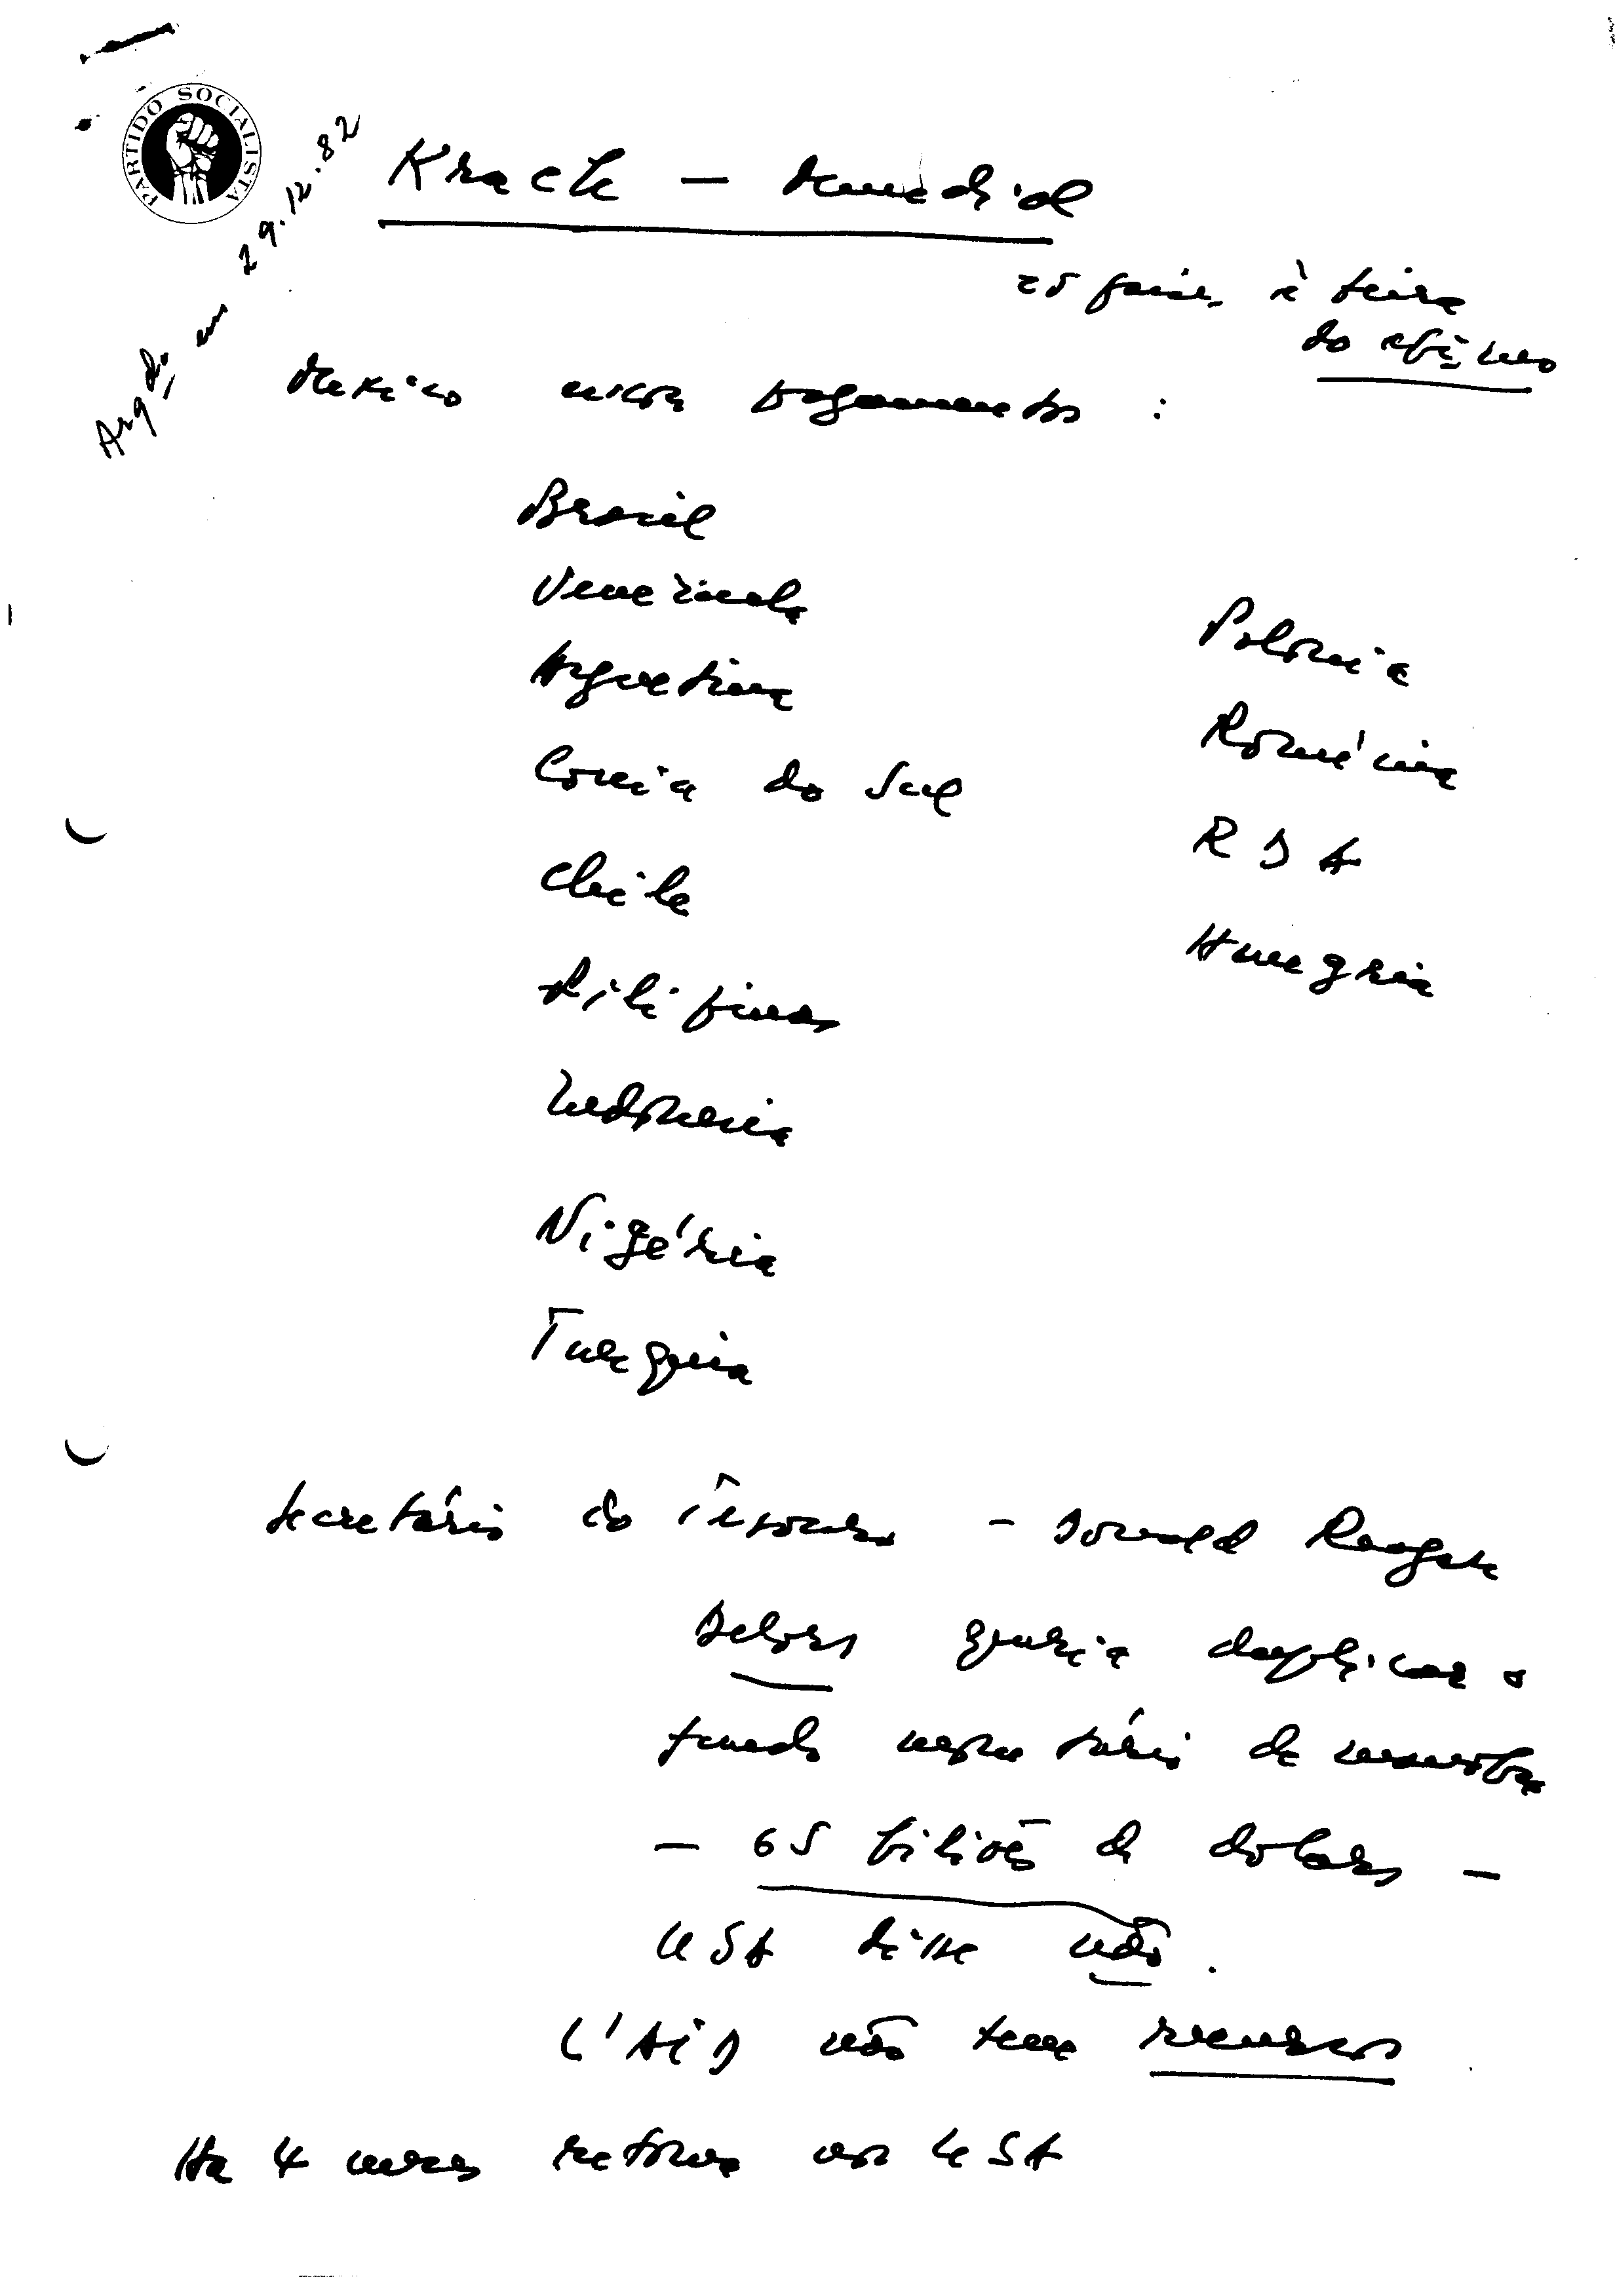 PARTIDO SOCIALISTA
Arqdo em 29.12.82
Krach - mundial
25 paises à beira
do abismo
Mexico pagamentos :
Brasil
Venezuela
Argentina
Coreia do Sul
Chile
Filipinas
Indonesia
Nigéria
Turquia
Polonia
Roménia
RDA
Hungria
Secretário do Tesouro - Donald Reagan
Delors queria duplicar o
fundo monetário de manobra
- 65 biliões de dolares -
USA disse não.
L'AID não tem recursos
Ha 4 meses retoma nos USA